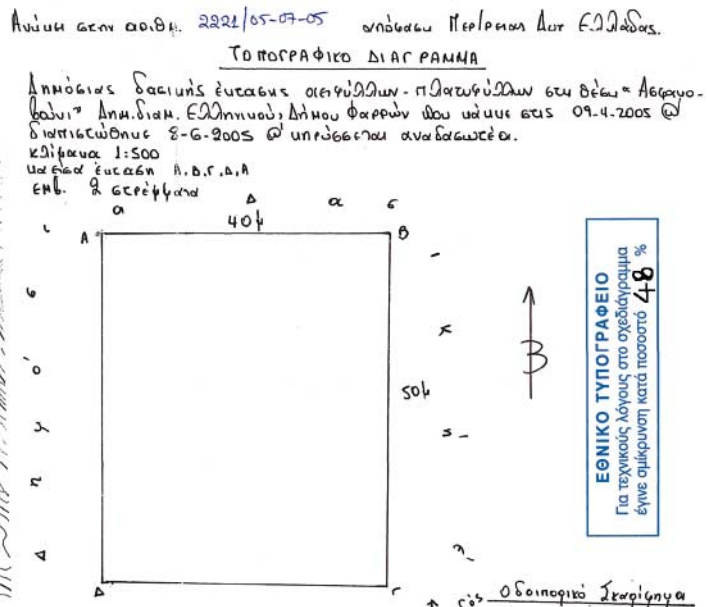 Ανήκει στην αριθμ. 2221/05-07-05 απόφαση Περ/ρειας Δυτ Ελλάδας.
ΤΟΠΟΓΡΑΦΙΚΟ ΔΙΑΓΡΑΜΜΑ
Δημόσιας δασικής έκτασης αειφύλλων - πλατυφύλλων στη θέση "Ασφαγο-
βούνι" Δημ. διαμ. Ελληνικού, Δήμου Φαρρών που κάηκε στις 09-4-2005
διαπιστώθηκε 8-6-2005 κηρύσσεται αναδασωτέα.
κλίμακα 1:500
καείσα έκταση Α, Β, Γ, Δ, Α
εμβ. 2 στρέμματα
Δ α σ
40μ
Α Β
50μ
Β
Δ Γ
ΕΘΝΙΚΟ ΤΥΠΟΓΡΑΦΕΙΟ
Για τεχνικούς λόγους στο σχεδιάγραμμα
έγινε σμίκρυνση κατά ποσοστό 48 %
Οδοιπορικό Σκαρίφημα